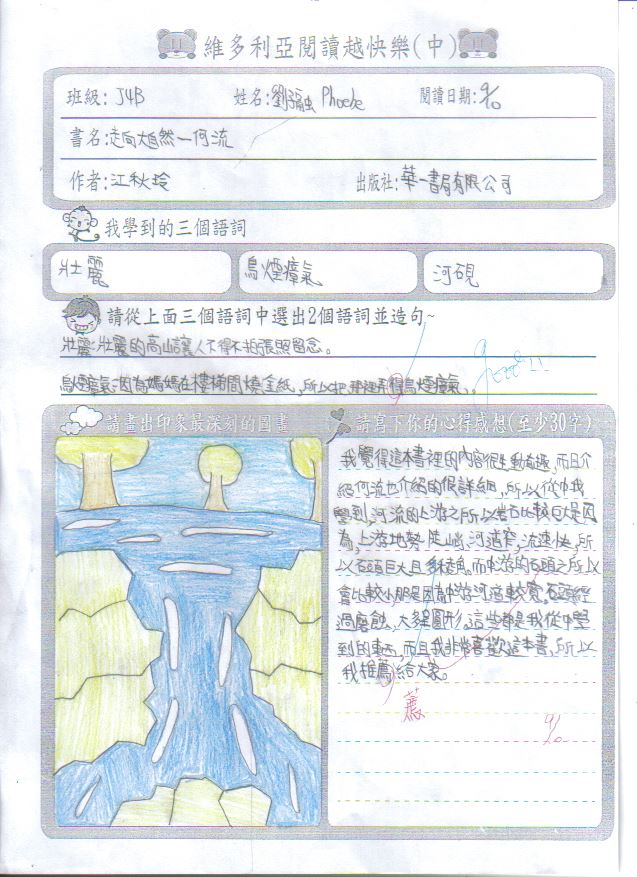 維多利亞閱讀越快樂(中)
班級: J4B 姓名: 劉 Phoebe 閱讀日期: 9/10
書名: 走向大自然—何流
作者: 江秋玲 出版社: 華一書局有限公司
我學到的三個語詞
壯麗 烏煙瘴氣 河硯
請從上面三個語詞中選出2個語詞並造句~
壯麗:壯麗的高山讓人不得不拍張照留念。
烏煙瘴氣:因為媽媽在樓梯間燒金紙,所以把那裡弄得烏煙瘴氣。
Good!!
請畫出印象最深刻的圖畫
請寫下你的心得感想(至少30字)
我覺得這本書裡的內容很生動有趣,而且介
紹何流也介紹的很詳細,所以從中我
學到,河流的上游之所以岩石比較巨大是因
為,上游地勢陡峭、河道窄,流速快,所
以石頭巨大且多稜角,而中游的石頭之所以
會比較小那是因為中游河道較寬,石頭經
過磨蝕,大多呈圓形,這些都是我從中學
到的東西,而且我非常喜歡這本書,所以
我推薦給大家。
薦
9/10